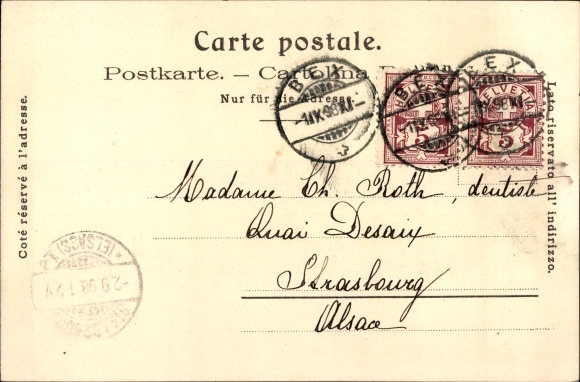 Carte postale.
Postkarte. — Cartolina
Nur für die Adresse.
BEX
-1.IX.98.XI-
BEX
BEX
HELVETIA
5
5
Coté réservé à l'adresse.
Lato riservato all' indirizzo.
Madame Ch. Roth, dentiste
Quai Desaix
Strasbourg
Alsace
(ELSASS)
-2.9.98.1-2V